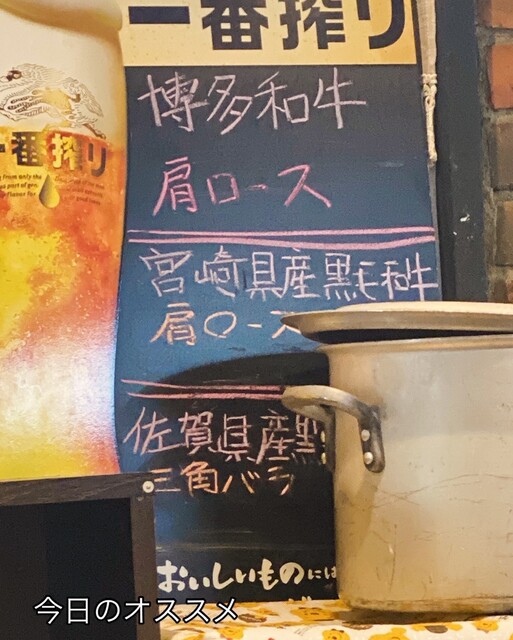 一番搾り
博多和牛
肩ロース
宮崎県産黒毛和牛
肩ロース
佐賀県産黒
三角バラ
おいしいものには
一番搾り
今日のオススメ